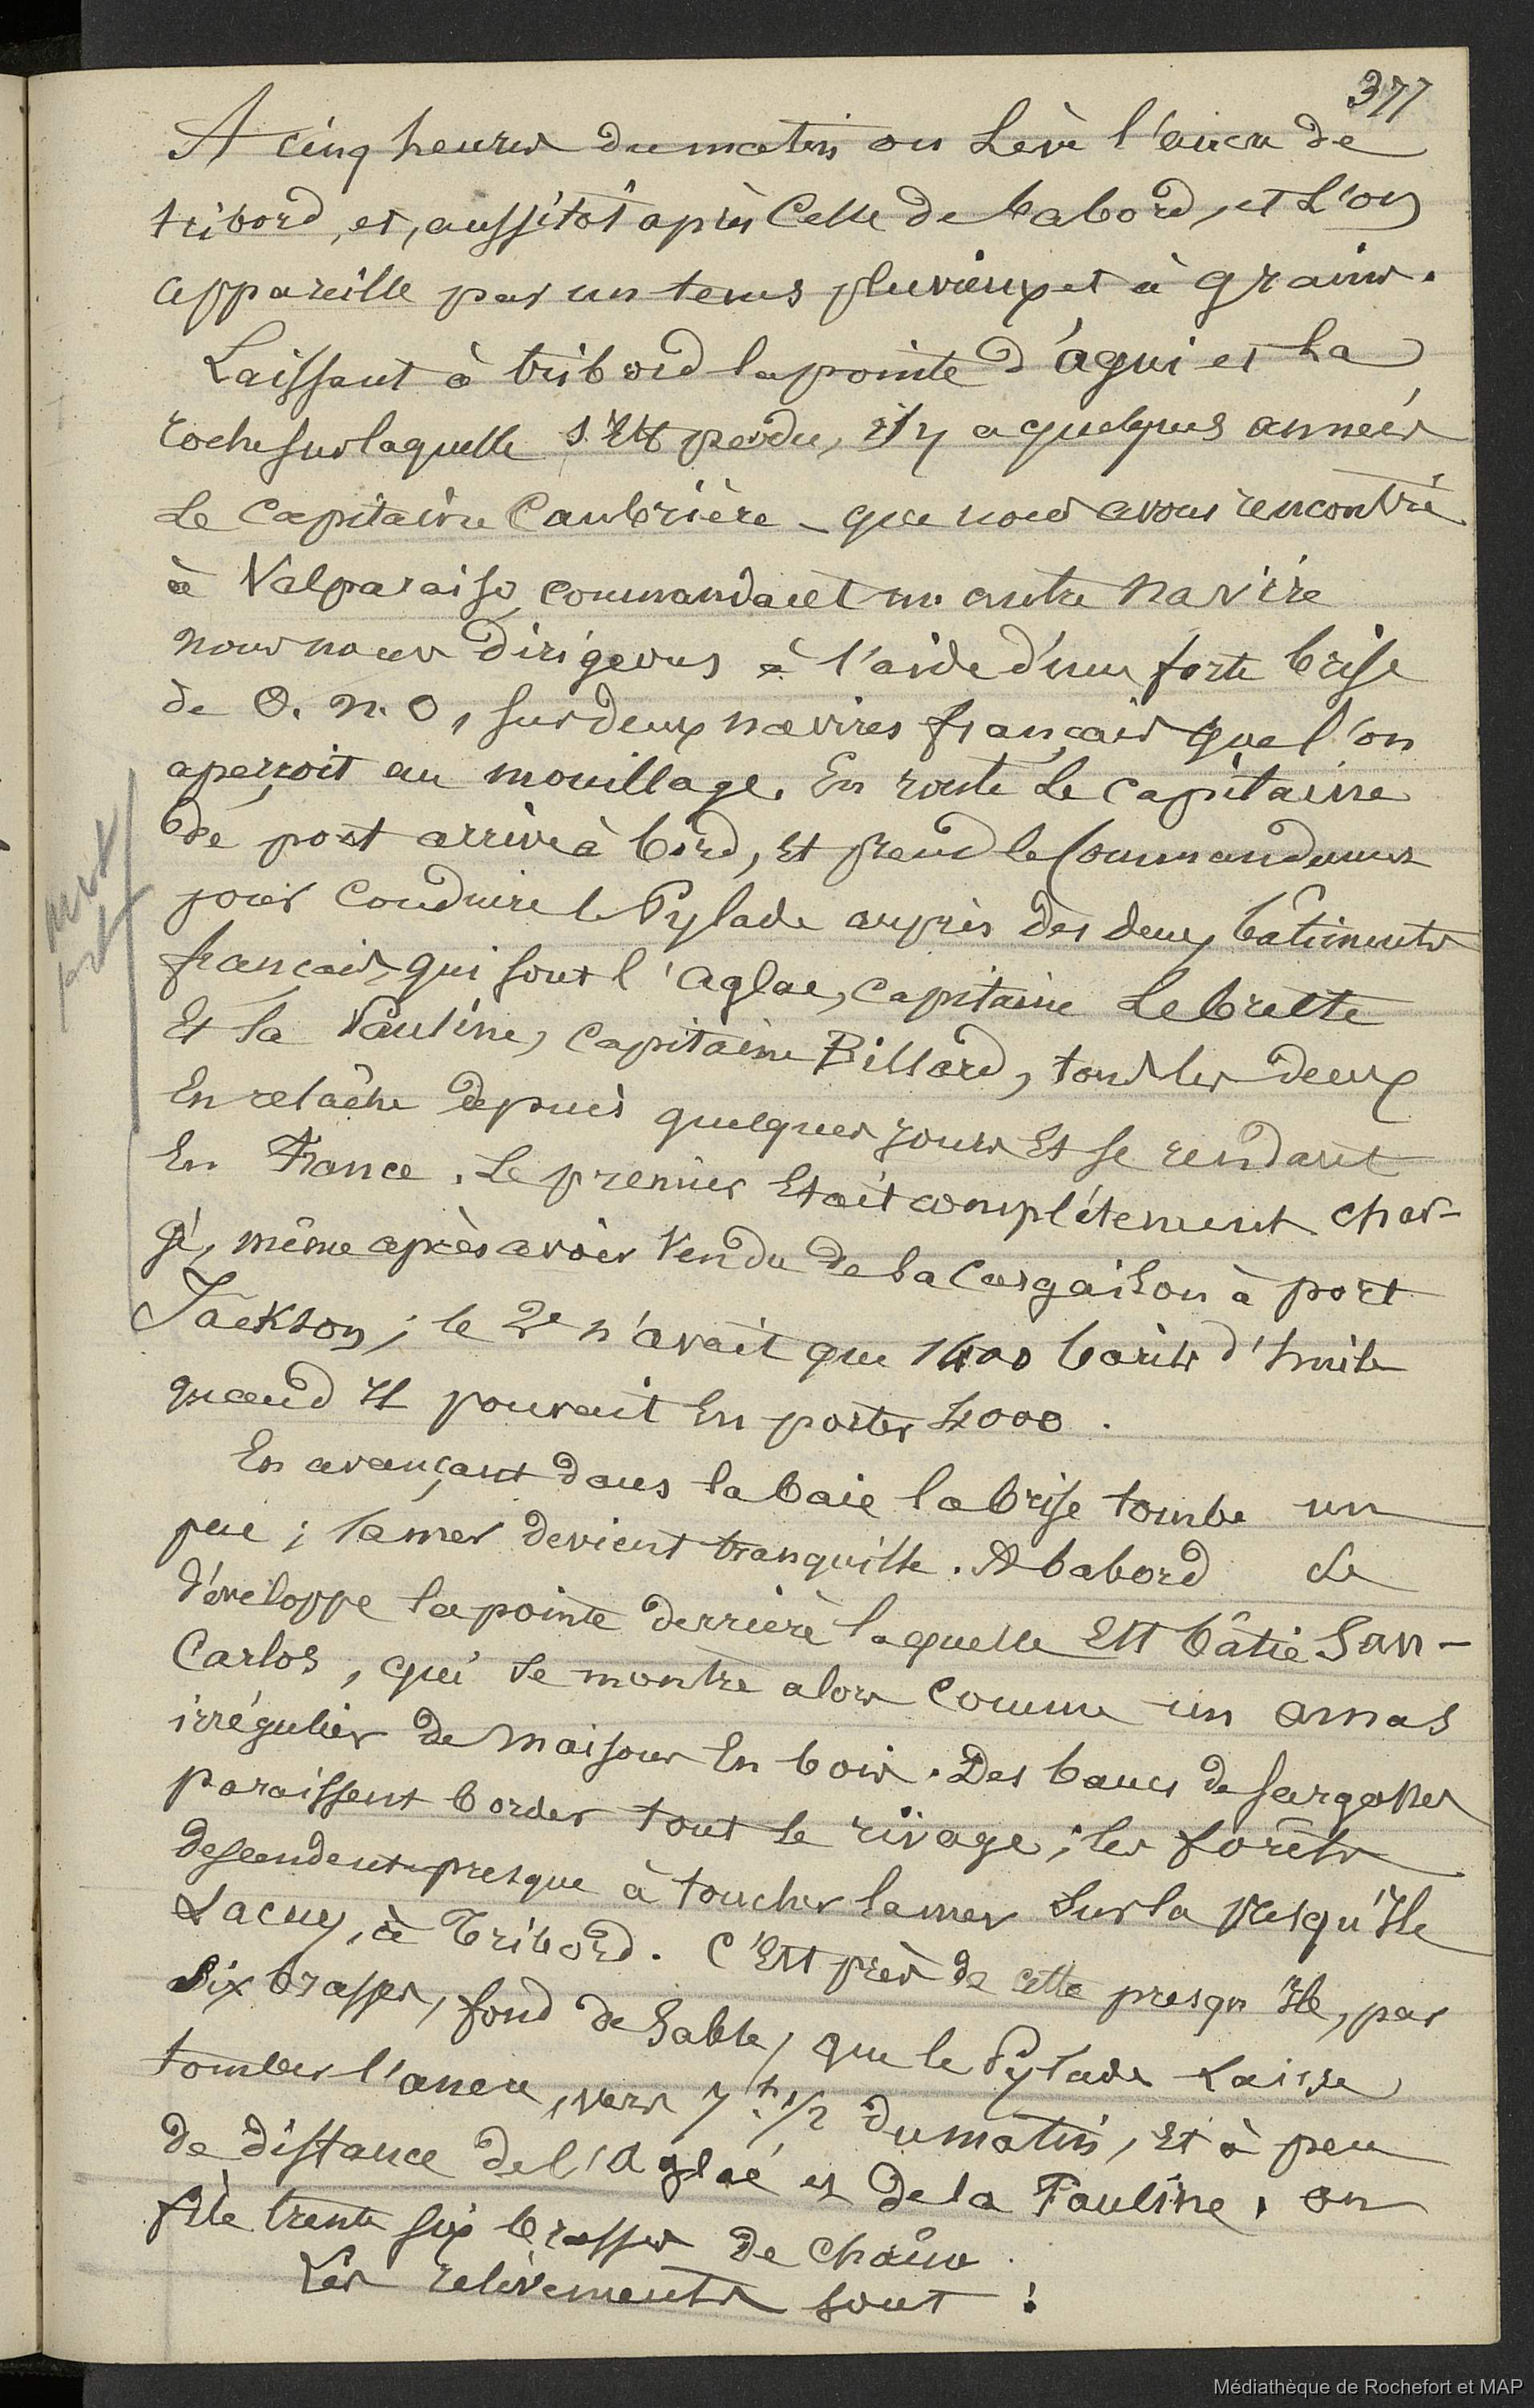 377
A cinq heures du matin on lève l'ancre de
tribord, et, aussitôt après celle de babord, et l'on
appareille par un tems pluvieux et à grains.
Laissant à tribord la pointe d'agui et la
roche sur laquelle s'est perdu, il y a quelques années
le capitaine Caubrière - que nous avons rencontré
à Valparaiso, commandant un autre navire
nous nous dirigeons à l'aide d'une forte brise
de O. N. O, sur deux navires français que l'on
aperçoit au mouillage. En route le capitaine
de port arrive à bord, et prend le commandement
pour conduire le Pylade auprès des deux bâtiments
français, qui sont l'Aglae, capitaine Lebrette
et la Pauline, capitaine Billard, tous les deux
en relâche depuis quelques jours et se rendant
en France. Le premier était complétement char-
gé, même après avoir vendu de sa cargaison à port
Jackson; le 2e n'avait que 1400 barils d'huile
quand il pouvait en porter 4000.
En avançant dans la baie la brise tombe un
peu; la mer devient tranquille. A babord se
développe la pointe derrière laquelle est bâtie San-
Carlos, qui se montre alors comme un amas
irrégulier de maisons en bois. Des bancs de sargasses
paraissent border tout le rivage; les forêts
descendent presque à toucher la mer sur la presqu'ile
Lacuy, à tribord. C'est près de cette presqu'ile, par
six brasses, fond de sable, que le Pylade laisse
tomber l'ancre, vers 7 h. 1/2 du matin, et à peu
de distance de l'Aglaé et de la Pauline. on
file trente six brasses de chaîne.
Les relèvements sont :
Médiathèque de Rochefort et MAP